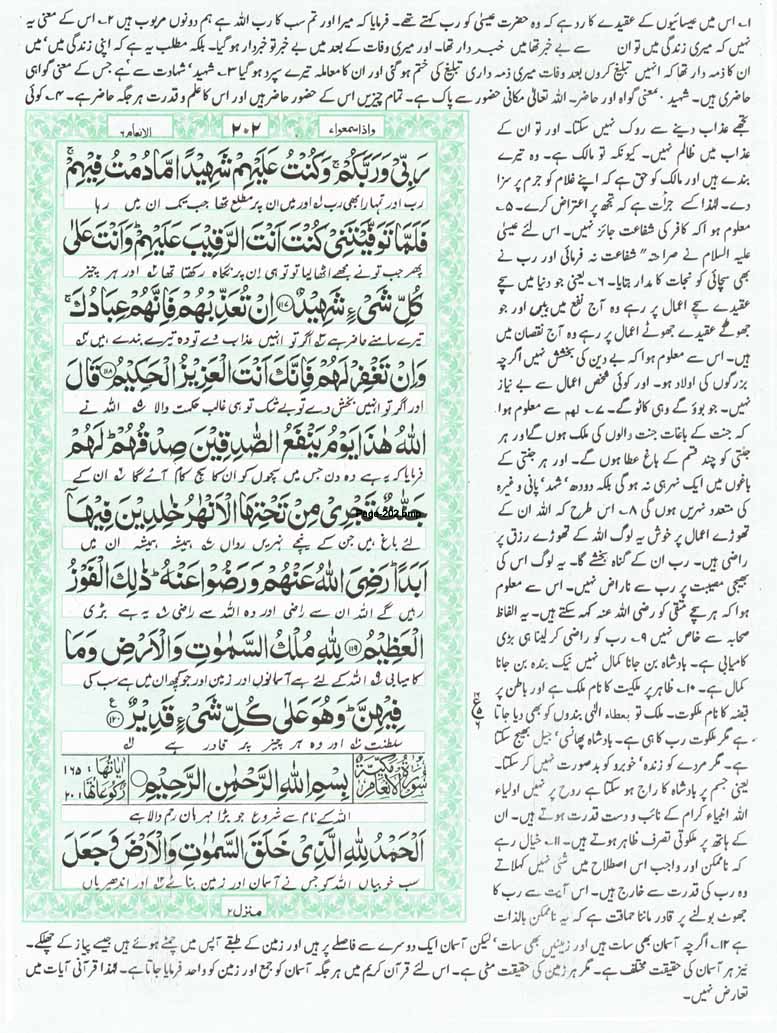 ۱۔ اس میں عیسائیوں کے عقیدے کا رد ہے کہ وہ حضرت عیسیٰ کو رب کہتے تھے۔ فرمایا کہ میرا اور تم سب کا رب اللہ ہے ہم دونوں مربوب ہیں ۲۔ اس کے معنی یہ
نہیں کہ میری زندگی میں تو ان سے بے خبر تھا میں خبردار تھا۔ اور میری وفات کے بعد میں بے خبر تو خبردار ہو گیا۔ بلکہ مطلب یہ ہے کہ اپنی زندگی میں' میں
ان کا ذمہ دار تھا کہ انہیں تبلیغ کروں بعد وفات میری ذمہ داری تبلیغ کی ختم ہو گئی اور ان کا معاملہ تیرے سپرد ہو گیا ۳۔ شہید' شہادت سے ہے جس کے معنی گواہی
حاضری ہیں۔ شہید۔ بمعنی گواہ اور حاضر۔ اللہ تعالیٰ مکانی حضور سے پاک ہے۔ تمام چیزیں اس کے حضور حاضر ہیں اور اس کا علم و قدرت ہر جگہ حاضر ہے۔ ۴۔ کوئی
تجھے عذاب دینے سے روک نہیں سکتا۔ اور تو ان کے
عذاب میں ظالم نہیں۔ کیونکہ تو مالک ہے۔ وہ تیرے
بندے ہیں اور مالک کو حق ہے کہ اپنے غلام کو جرم پر سزا
دے۔ لہٰذا کسے جرأت ہے کہ تجھ پر اعتراض کرے۔ ۵۔
معلوم ہوا کہ کافر کی شفاعت جائز نہیں۔ اس لئے عیسیٰ
علیہ السلام نے صراحتہ" شفاعت نہ فرمائی اور رب نے
بھی سچائی کو نجات کا مدار بتایا۔ ۶۔ یعنی جو دنیا میں سچے
عقیدے سچے اعمال پر رہے وہ آج نفع میں ہیں اور جو
جھوٹے عقیدے جھوٹے اعمال پر رہے وہ آج نقصان میں
ہیں۔ اس سے معلوم ہوا کہ بے دین کی بخشش نہیں اگرچہ
بزرگوں کی اولاد ہو۔ اور کوئی شخص اعمال سے بے نیاز
نہیں۔ جو بوؤ گے وہی کاٹو گے۔ ۷۔ لہم سے معلوم ہوا
کہ جنت کے باغات جنت والوں کی ملک ہوں گے اور ہر
جنتی کو چند قسم کے باغ عطا ہوں گے۔ اور ہر جنتی کے
باغوں میں ایک نہر ہی نہ ہو گی بلکہ دودھ' شہد' پانی وغیرہ
کی متعدد نہریں ہوں گی ۸۔ اس طرح کہ اللہ ان کے
تھوڑے اعمال پر خوش یہ لوگ اللہ کے تھوڑے رزق پر
راضی ہیں۔ رب ان کے گناہ بخشے گا۔ یہ لوگ اس کی
بھیجی مصیبت پر رب سے ناراض نہیں۔ اس سے معلوم
ہوا کہ ہر سچے متقی کو رضی اللہ عنہ کہہ سکتے ہیں۔ یہ الفاظ
صحابہ سے خاص نہیں ۹۔ رب کو راضی کر لینا ہی بڑی
کامیابی ہے۔ بادشاہ بن جانا کمال نہیں نیک بندہ بن جانا
کمال ہے۔ ۱۰۔ ظاہر پر ملکیت کا نام ملک ہے اور باطن پر
قبضہ کا نام ملکوت۔ ملک تو بعطاء الٰہی بندوں کو بھی دیا جاتا
ہے مگر ملکوت رب کا ہی ہے۔ بادشاہ پھانسی' جیل بھیج سکتا
ہے۔ مگر مردے کو زندہ' خوبرو کو بدصورت نہیں کر سکتا۔
یعنی جسم پر بادشاہ کا راج ہو سکتا ہے روح پر نہیں اولیاء
اللہ انبیاء کرام کے نائب و دست قدرت ہوتے ہیں۔ ان
کے ہاتھ پر ملکوتی تصرف ظاہر ہوتے ہیں۔ ۱۱۔ خیال رہے
کہ ناممکن اور واجب اس اصطلاح میں شئی نہیں کہلاتے
وہ رب کی قدرت سے خارج ہیں۔ اس آیت سے رب کا
جھوٹ بولنے پر قادر ماننا حماقت ہے کہ یہ ناممکن بالذات
ہے ۱۲۔ اگرچہ آسمان بھی سات ہیں اور زمینیں بھی سات' لیکن آسمان ایک دوسرے سے فاصلے پر ہیں اور زمین کے طبقے آپس میں چمٹے ہوئے ہیں جیسے پیاز کے چھلکے۔
نیز ہر آسمان کی حقیقت مختلف ہے۔ مگر ہر زمین کی حقیقت مٹی ہے۔ اس لئے قرآن کریم میں ہر جگہ آسمان کو جمع اور زمین کو واحد فرمایا جاتا ہے۔ لہٰذا قرآنی آیات میں
تعارض نہیں۔
واذا سمعوا ۷ ۲۰۲ الانعام ۶
رَبِّیْ وَرَبَّكُمْ ۚ وَكُنْتُ عَلَیْهِمْ شَهِیْدًا مَّا دُمْتُ فِیْهِمْ ۚ
رب اور تمہارا بھی رب اور میں ان پر مطلع تھا جب تک ان میں رہا
فَلَمَّا تَوَفَّیْتَنِیْ كُنْتَ اَنْتَ الرَّقِیْبَ عَلَیْهِمْ ؕ وَاَنْتَ عَلٰی
پھر جب تو نے مجھے اٹھا لیا تو تو ہی ان پر نگاہ رکھتا تھا اور ہر چیز
كُلِّ شَیْءٍ شَهِیْدٌ ۝۱۱۷ اِنْ تُعَذِّبْهُمْ فَاِنَّهُمْ عِبَادُكَ ۚ
تیرے سامنے حاضر ہے اگر تو انہیں عذاب دے تو وہ تیرے بندے ہیں
وَاِنْ تَغْفِرْ لَهُمْ فَاِنَّكَ اَنْتَ الْعَزِیْزُ الْحَكِیْمُ ۝۱۱۸ قَالَ
اور اگر تو انہیں بخش دے تو بے شک تو ہی غالب حکمت والا اللہ نے
اللّٰهُ هٰذَا یَوْمُ یَنْفَعُ الصّٰدِقِیْنَ صِدْقُهُمْ ؕ لَهُمْ
فرمایا کہ یہ ہے وہ دن جس میں سچوں کو ان کا سچ کام آئے گا ان کے
جَنّٰتٌ تَجْرِیْ مِنْ تَحْتِهَا الْاَنْهٰرُ خٰلِدِیْنَ فِیْهَاۤ
Page-202.bmp
لئے باغ ہیں جن کے نیچے نہریں رواں ہمیشہ ہمیشہ ان میں
اَبَدًا ؕ رَضِیَ اللّٰهُ عَنْهُمْ وَرَضُوْا عَنْهُ ؕ ذٰلِكَ الْفَوْزُ
رہیں گے اللہ ان سے راضی اور وہ اللہ سے راضی یہ ہے بڑی
الْعَظِیْمُ ۝۱۱۹ لِلّٰهِ مُلْكُ السَّمٰوٰتِ وَالْاَرْضِ وَمَا
کامیابی اللہ کے لئے ہے آسمانوں اور زمین اور جو کچھ ان میں ہے سب کی
فِیْهِنَّ ؕ وَهُوَ عَلٰی كُلِّ شَیْءٍ قَدِیْرٌ ۝۱۲۰ ع
سلطنت اور وہ ہر چیز پر قادر ہے
سُوْرَةُ الْاَنْعَامِ مَكِّیَّةٌ بِسْمِ اللّٰهِ الرَّحْمٰنِ الرَّحِیْمِ اٰیَاتُهَا ۱۶۵ رُكُوْعَاتُهَا ۲۰
اللہ کے نام سے شروع جو بڑا مہربان رحم والا ہے
اَلْحَمْدُ لِلّٰهِ الَّذِیْ خَلَقَ السَّمٰوٰتِ وَالْاَرْضَ وَجَعَلَ
سب خوبیاں اللہ کو جس نے آسمان اور زمین بنائے اور اندھیریاں
منزل ۲